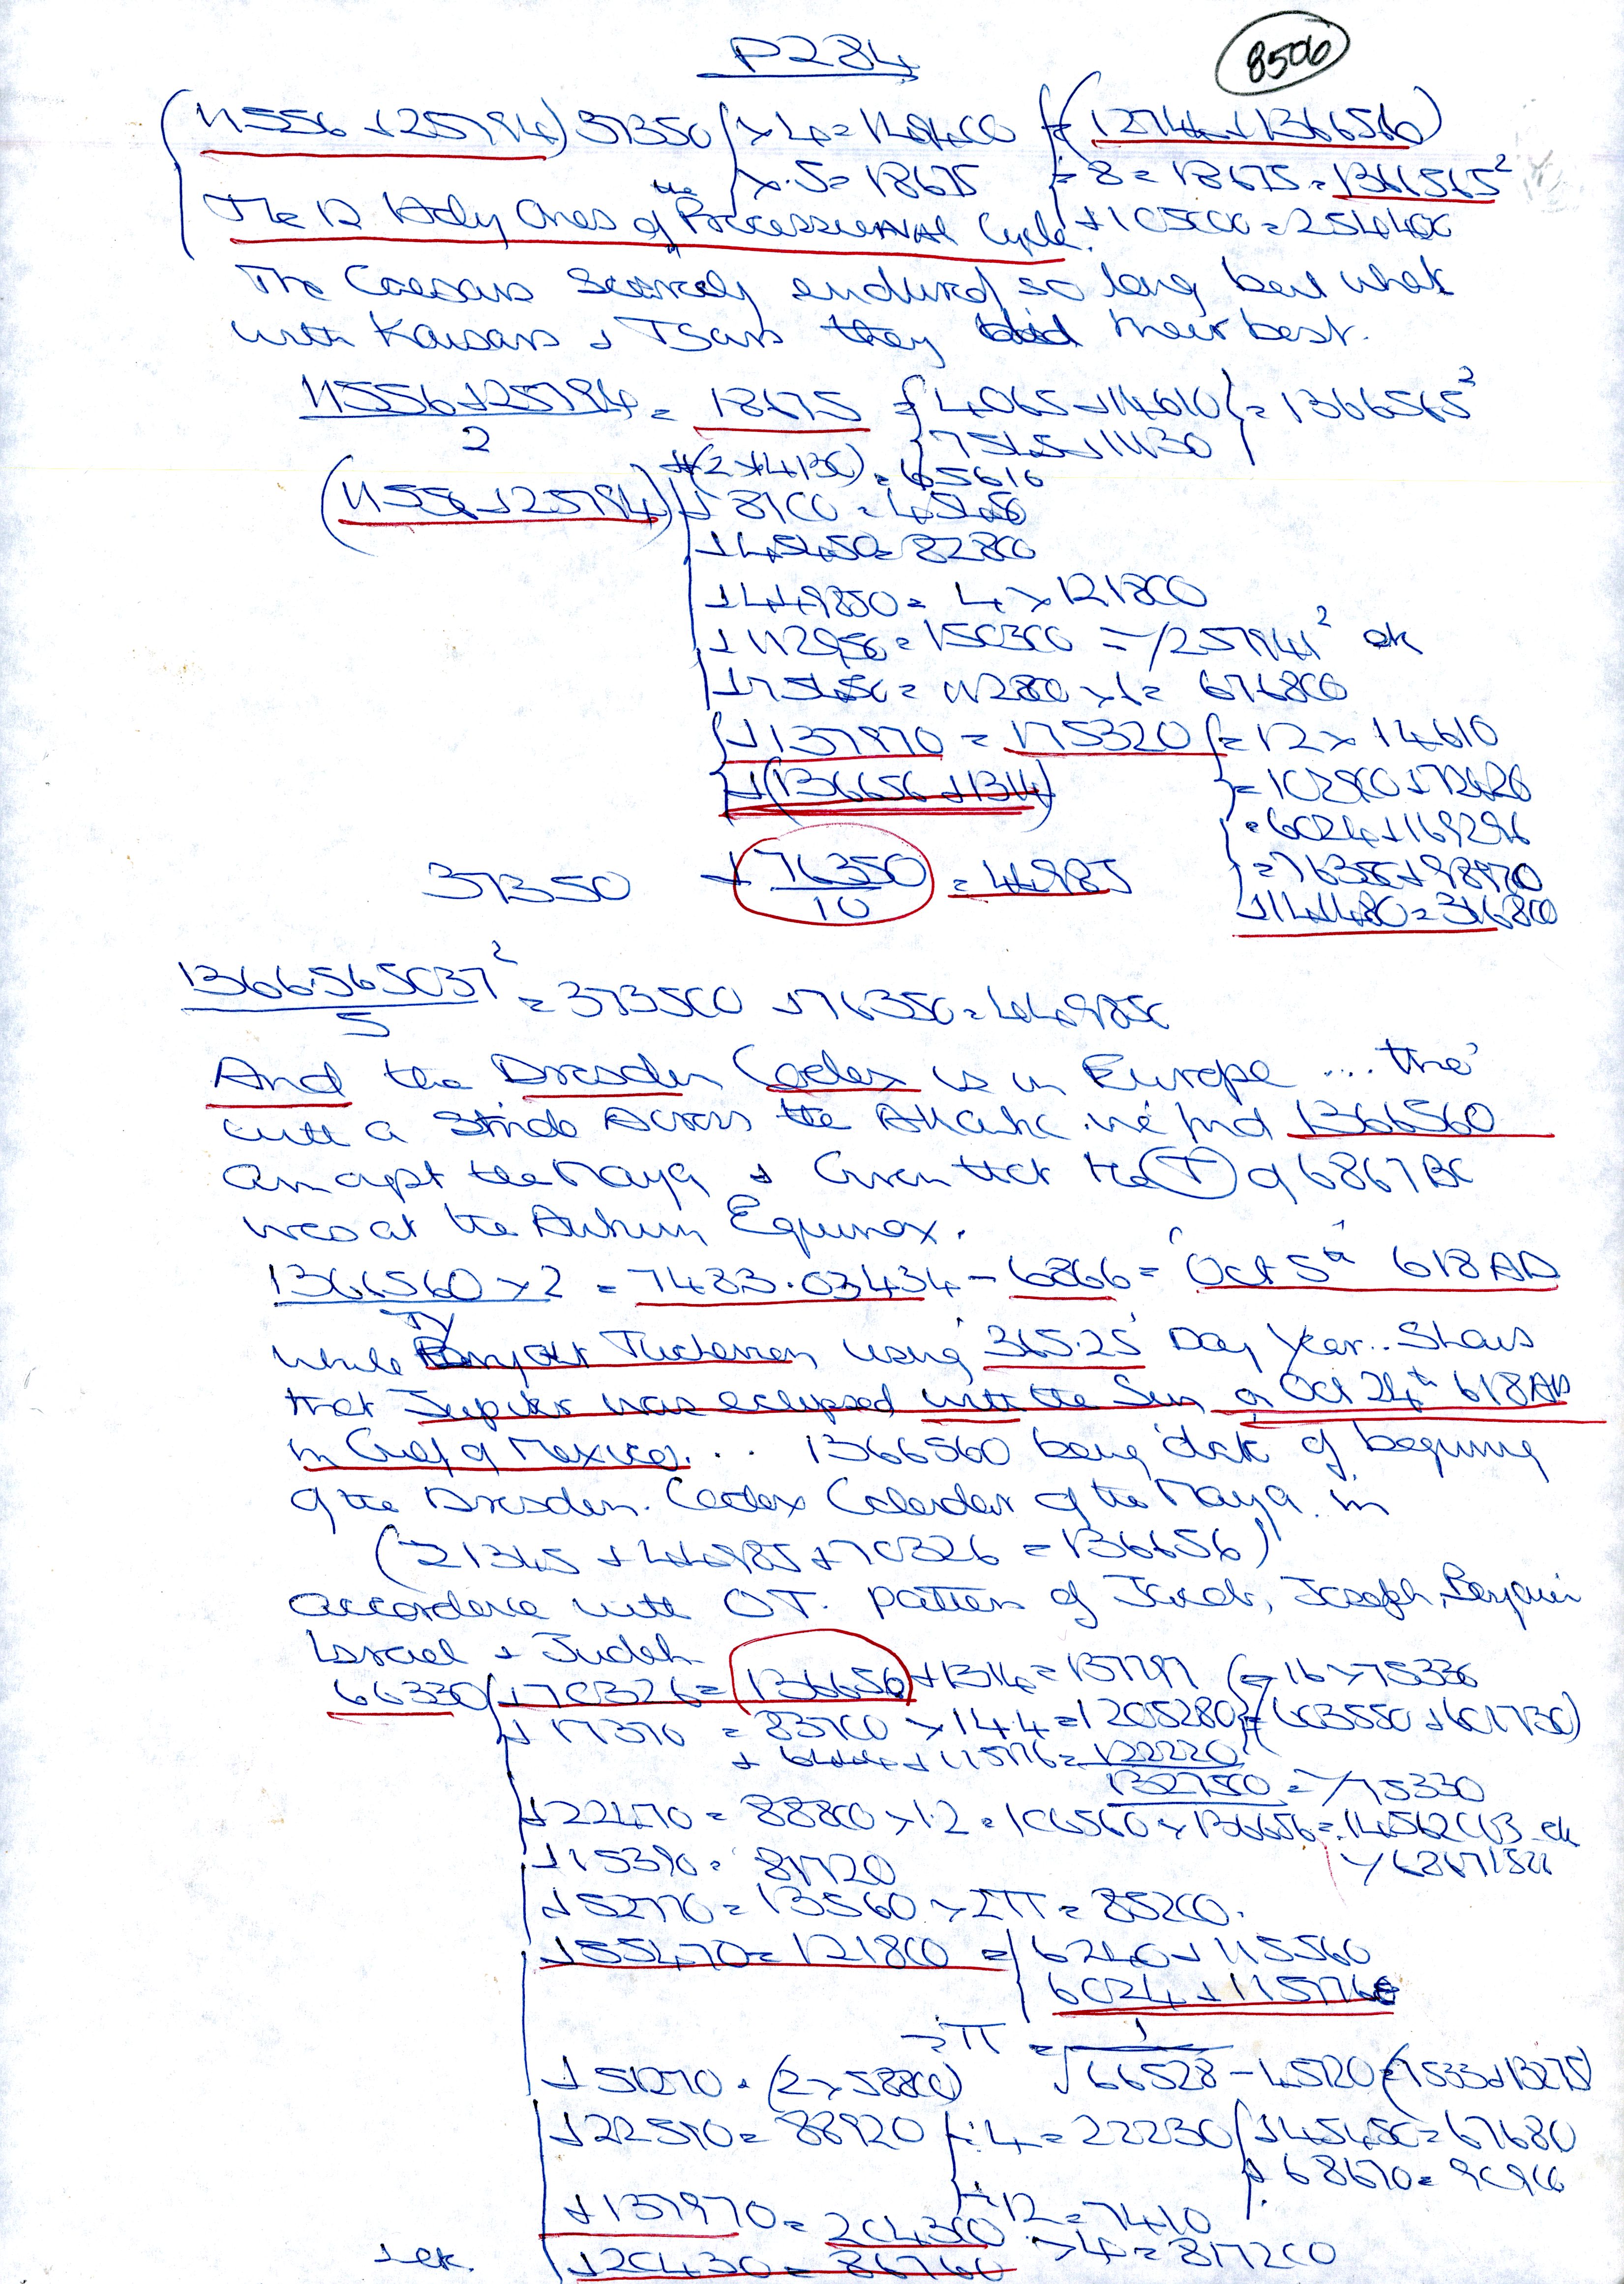 P284
8506
(11556 + 25794) 37350 { × 4 = 149400 { = (12744 + 136656)
× .5 = 18675 ÷ 8 = 18675 = 136.6565²
The 12 Holy Ones of the Processional Cycle. + 105000 = 254400
The Caesars Scarcely endured so long but what
with Kaisars + Tsars they did their best.
11556 + 25794 = 18675 = { 4065 + 14610 } = 136.6565²
2 { 7545 + 11130
(11556 + 25794) + (2 × 14130) = 65610
+ 8100 = 45450
+ 45450 = 82800
+ 449850 = 4 × 121800
+ 112950 = 150300 = 25794² ok
+ 75450 = 112800 × 6 = 676800
+ 137970 = 175320 { = 12 × 14610
+ (136656 + 1314) = 102900 + 72420
= 6024 + 169296
37350 + 76350 = 44985 = 76350 + 98970
10 + 141480 = 316800
1366.565037² = 373500 + 76350 = 449850
5
And the Dresden Codex is in Europe .... tho'
with a Stride Across the Atlantic we find 1366560
amongst the Maya + Given that the (T) of 6867 BC
was at the Autumn Equinox.
1366560 × 2 = 7483.03434 - 6866 = Oct 5th 618 AD
TY
while Bryant Tuckerman using 365.25 Day Year.. Shows
that Jupiter was eclipsed with the Sun on Oct 24th 618 AD
in Gulf of Mexico... 1366560 being date of beginning
of the Dresden Codex Calendar of the Maya in
(21345 + 44985 + 70326 = 136656)
accordance with OT. pattern of Jacob, Joseph, Benjamin
Israel + Judah
66330 { + 70326 = 136656 + 1314 = 137970 (= 16 × 75336
+ 17370 = 83700 × 14.4 = 1205280 = (603550 + 601730)
+ 6444 + 115776 = 122220
1327500 = 75330
+ 22470 = 88800 × 1.2 = 106560 × 136656 = 14562063 ok
+ 15390 = 81720
+ 52770 = 13560 × 2π = 85200.
+ 55470 = 121800 = { 6240 + 115560
6024 + 115776
÷ π = 1
+ 51270 = (2 × 58800) √66528 - 45120 = (7533 + 13275)
+ 22590 = 88920 { ÷ 4 = 22230 { + 45450 = 67680
+ 68670 = 90900
÷ 12 = 7410
+ 137970 = 204300 × 4 = 817200
+ ok. + 20430 = 86760